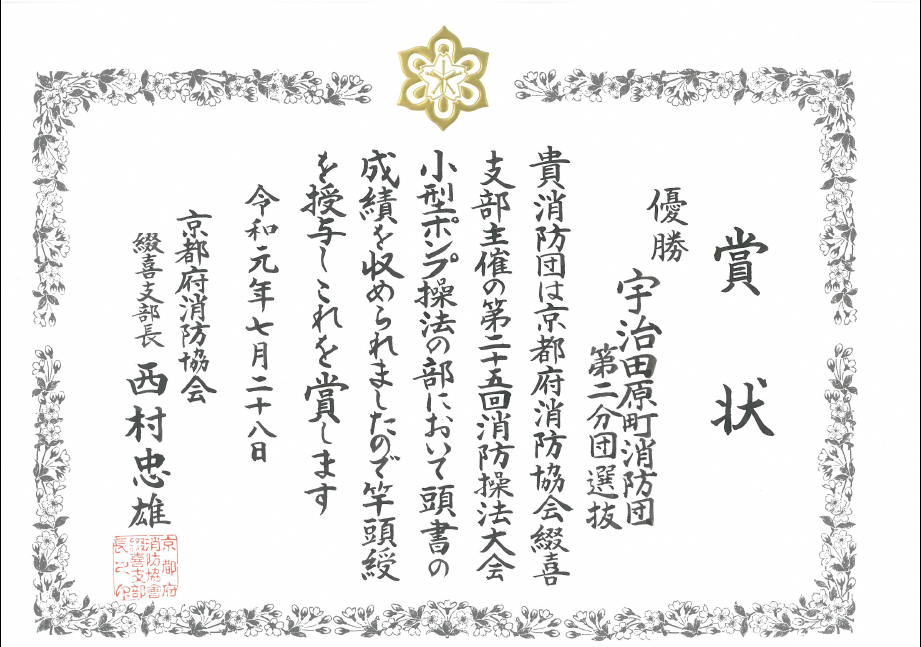 賞状
優勝
宇治田原町消防団
第二分団選抜
貴消防団は京都府消防協会綴喜
支部主催の第二十五回消防操法大会
小型ポンプ操法の部において頭書の
成績を収められましたので竿頭綬
を授与しこれを賞します
令和元年七月二十八日
京都府消防協会
綴喜支部長 西村忠雄
京都府
消防協會
綴喜支部
長之印